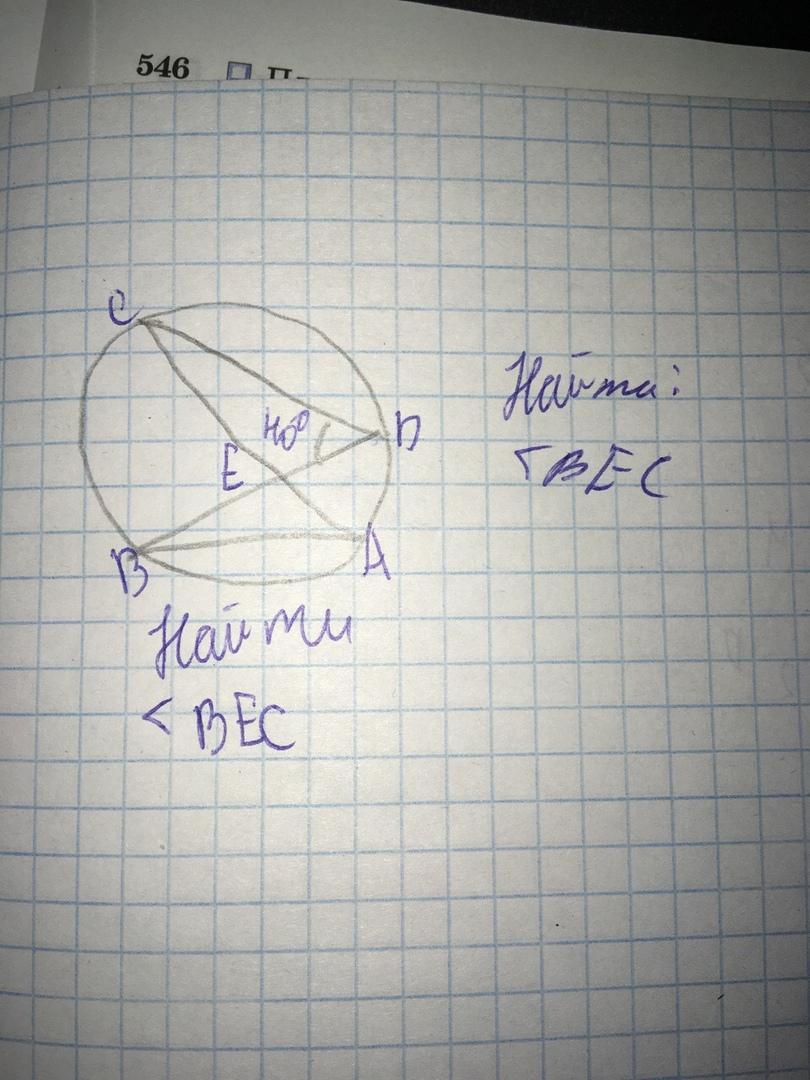 546
C
40°
D
E
B
A
Найти:
<BEC
Найти
< BEC